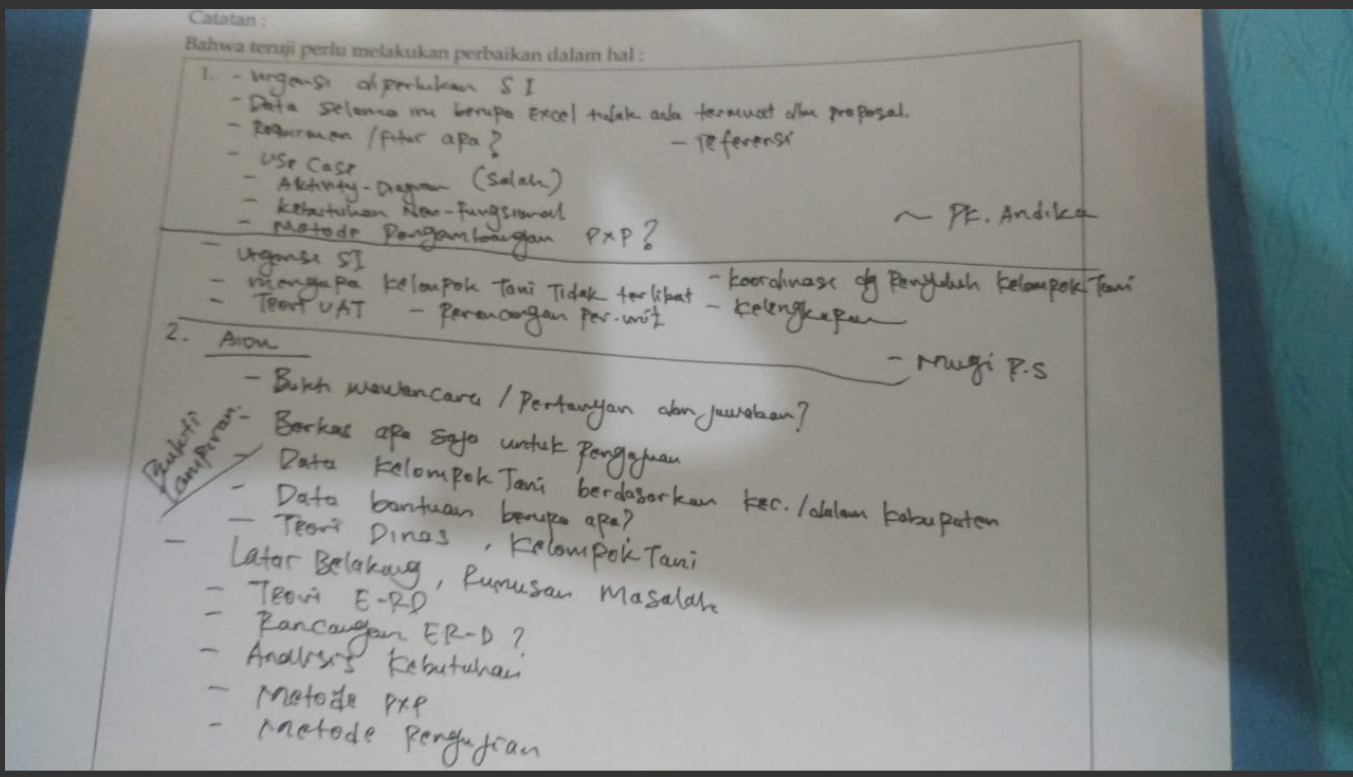 Catatan :
Bahwa teruji perlu melakukan perbaikan dalam hal :
1. - urgensi diperlukan SI
- Data selama ini berupa Excel tidak ada termuat dlm proposal.
- Requiremen / fitur apa? - referensi
- Use Case
- Aktivity-Diagram (Salah)
- Kebutuhan Non-Fungsional
- Metode Pengembangan PXP? ~ Pk. Andika
- Urgensi SI
- mengapa Kelompok Tani Tidak terlibat - Koordinasi dg Penyuluh Kelompok Tani
- Teori UAT - Perancangan Per.unit - Kelengkapan
- Mugi P.S
2. 
- Bukti wawancara / Pertanyan dan juwaban?
- Berkas apa saja untuk Pengajuan
Bukti Lampiran.
- Data Kelompok Tani berdasarkan kec. / dalam Kabupaten
- Data bantuan berupa apa?
- Teori Dinas, Kelompok Tani
- Latar Belakang, Rumusan Masalah
- Teori E-RD
- Rancangan ER-D ?
- Analisis Kebutuhan
- Metode PXP
- Metode Pengujian